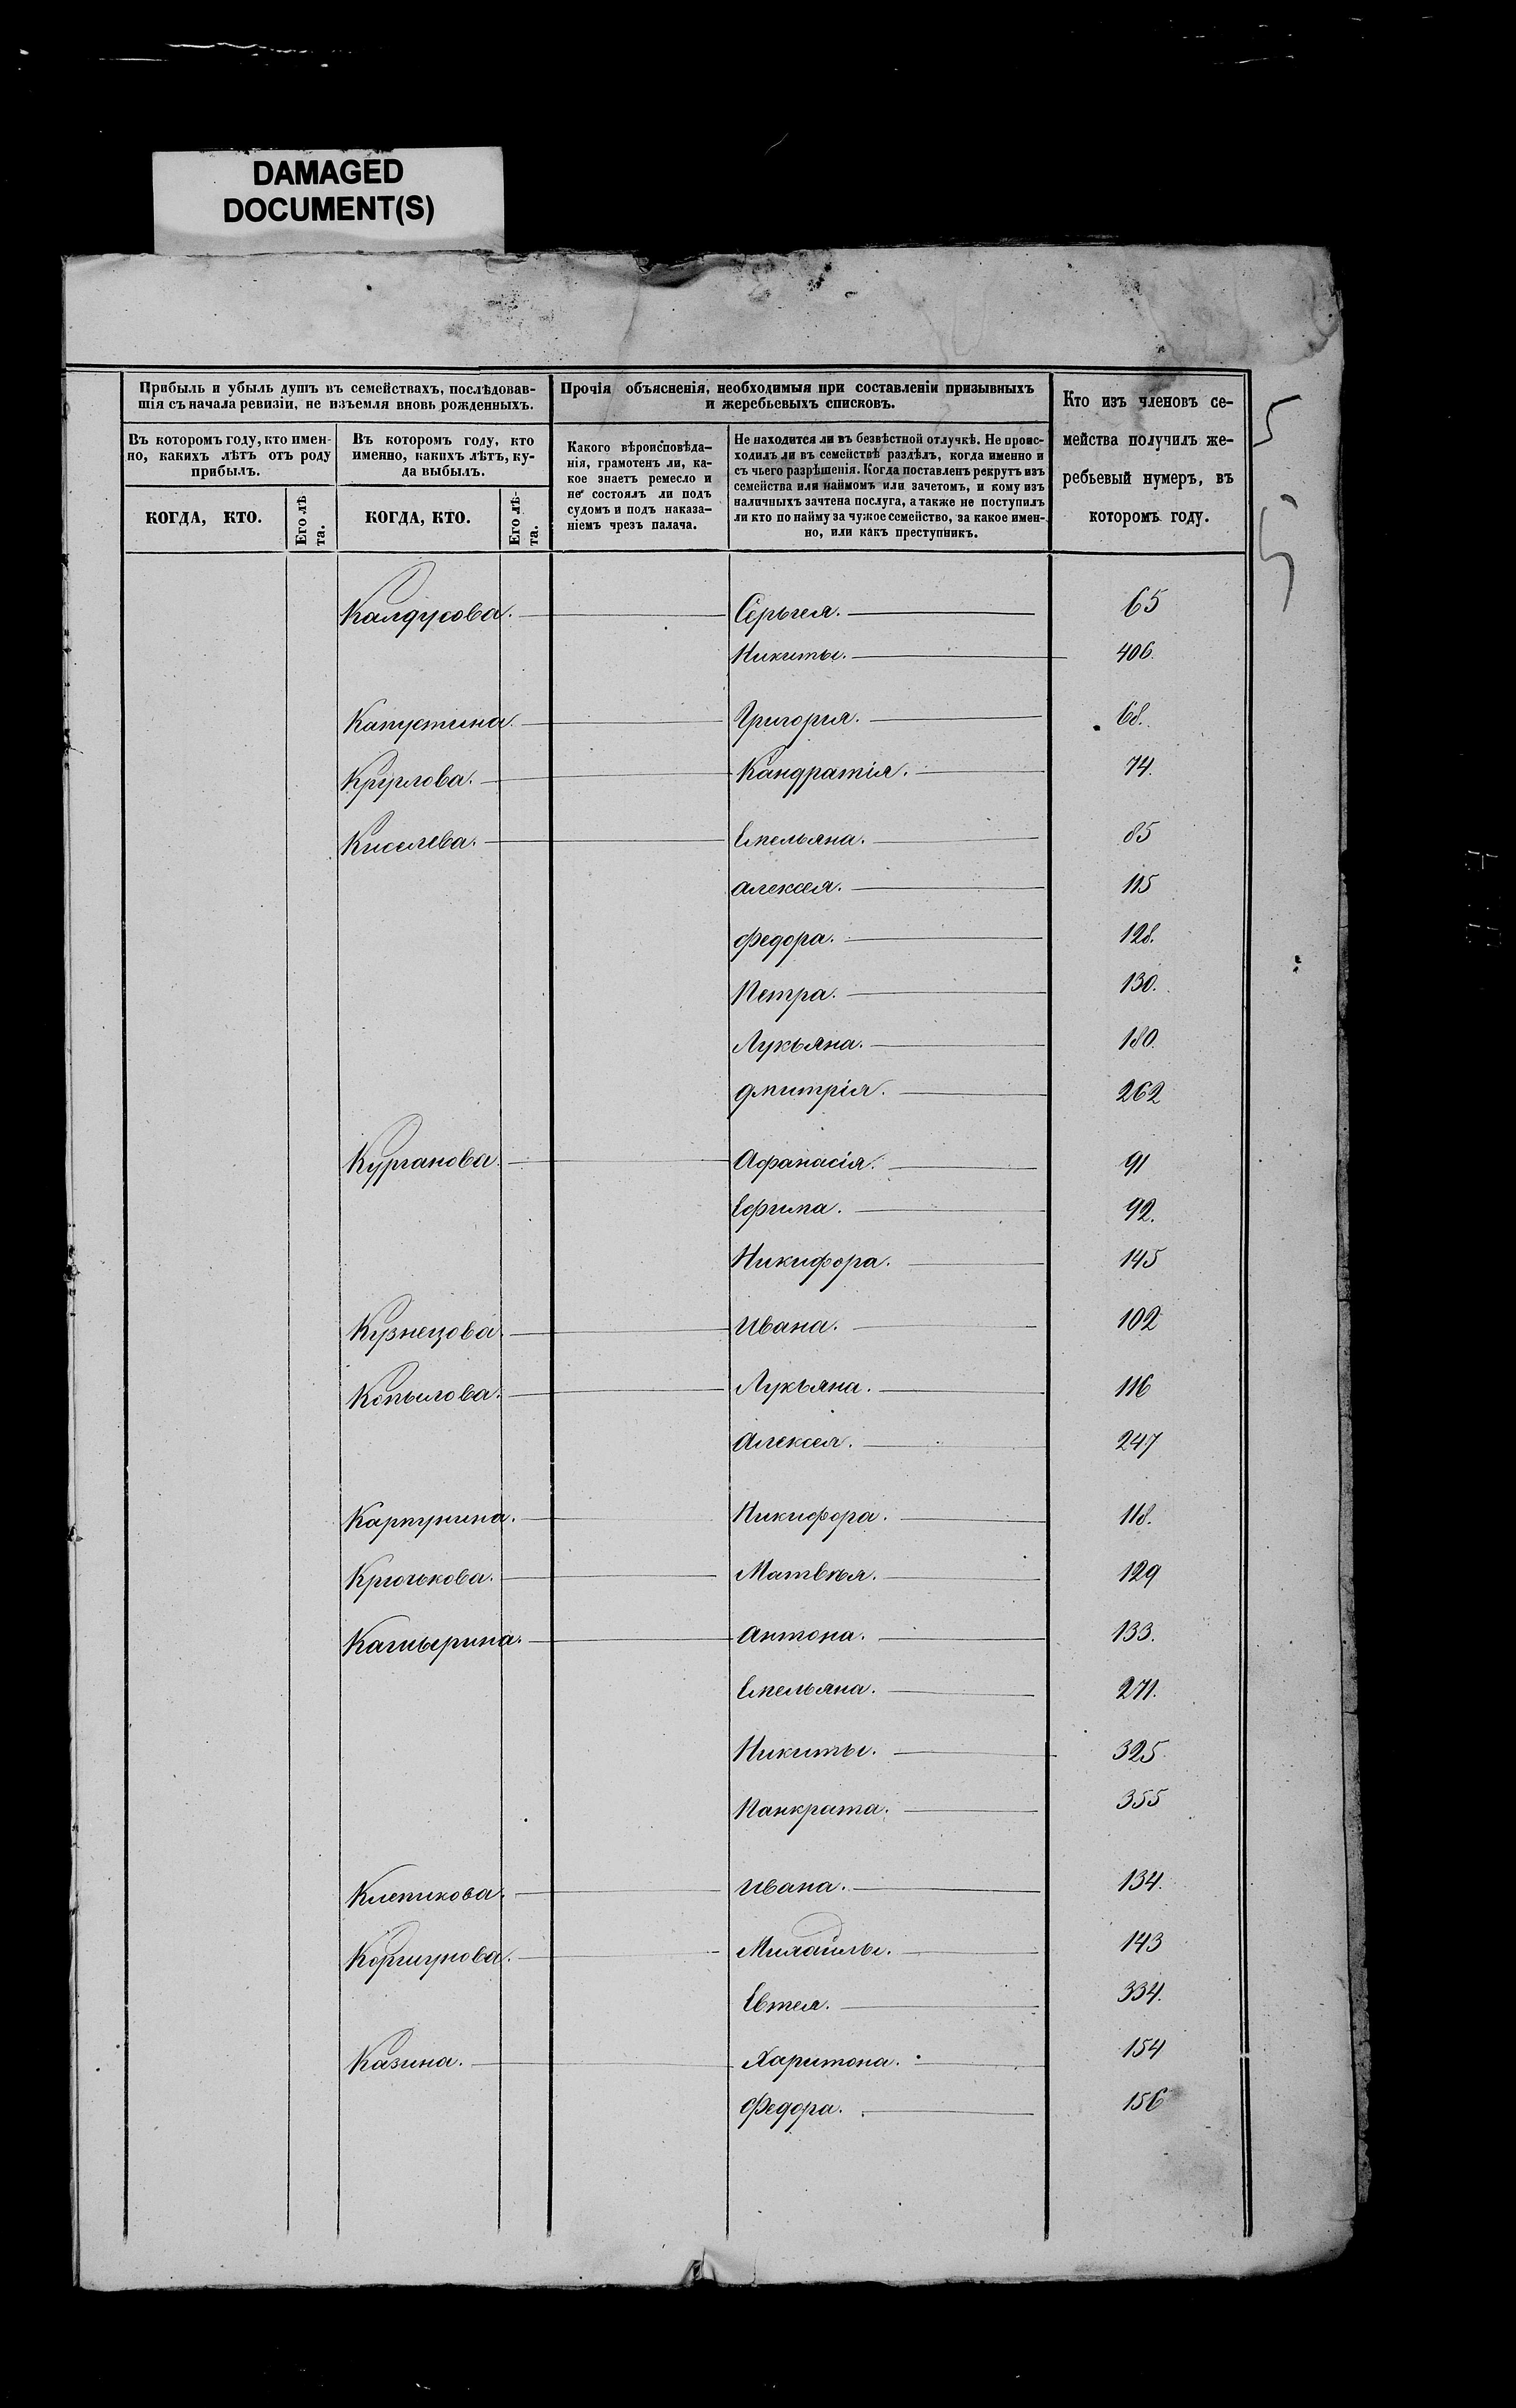 DAMAGED
DOCUMENT(S)
Прибыль и убыль душъ въ семействахъ, послѣдовав-
шія съ начала ревизіи, не изъемля вновь рожденныхъ.
Въ которомъ году, кто имен-
но, какихъ лѣтъ отъ роду
прибылъ.
КОГДА, КТО.
Его лѣ
та.
Въ которомъ году, кто
именно, какихъ лѣтъ, ку-
да выбылъ.
КОГДА, КТО.
Его лѣ-
та.
Прочія объясненія, необходимыя при составленіи призывныхъ
и жеребьевыхъ списковъ.
Какого вѣроисповѣда-
нія, грамотенъ ли, ка-
кое знаетъ ремесло и
не состоялъ ли подъ
судомъ и подъ наказа-
ніемъ чрезъ палача.
Не находится ли въ безвѣстной отлучкѣ. Не проис-
ходилъ ли въ семействѣ раздѣлъ, когда именно и
съ чьего разрѣшенія. Когда поставленъ рекрутъ изъ
семейства или наймомъ или зачетомъ, и кому изъ
наличныхъ зачтена послуга, а также не поступилъ
ли кто по найму за чужое семейство, за какое имен-
но, или какъ преступникъ.
Кто изъ членовъ се-
мейства получилъ же-
ребьевый нумеръ, въ
которомъ году.
5
5
Калдусова. Серьгея. 65
Никиты. 406.
Капустина. Григорья. 68.
Круглова. Кандратія. 74.
Киселева. Емельяна. 85
Алексея. 115
Федора. 128.
Петра. 130.
Лукьяна. 180.
Дмитрія. 262
Курганова. Афанасія. 91
Ефима. 92.
Никифора. 145
Кузнецова. Ивана. 102
Копылова. Лукьяна. 116
Алексея. 247
Карпунина. Никифора. 118.
Крючькова. Матвѣя. 129
Кашырина. Антона. 133.
Емельяна. 271.
Никиты. 325.
Панкрата. 355
Клепикова. Ивана. 134.
Коршунова. Михаилы. 143
Евтея. 334.
Казина. Харитона. 154
Федора. 156